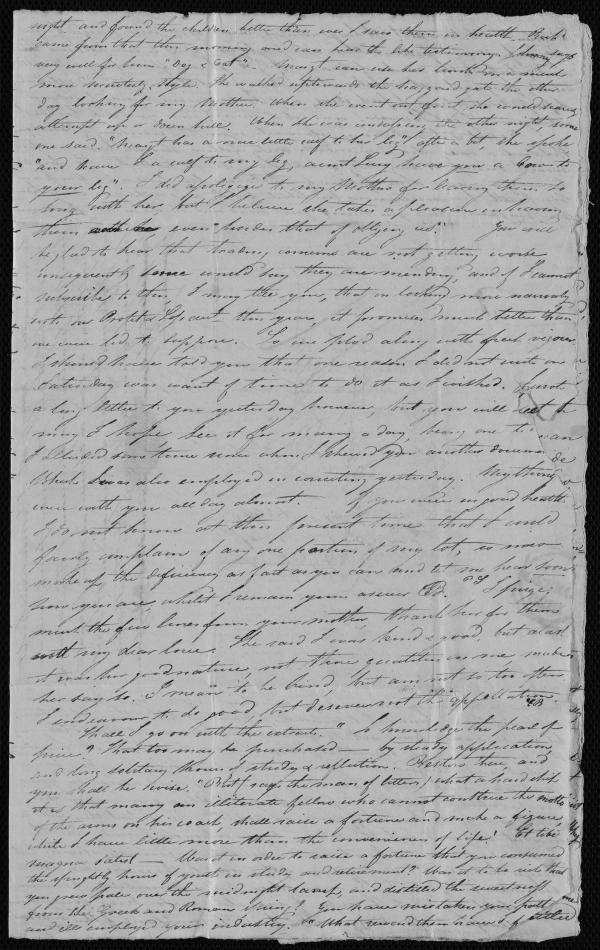 night and found the children better than ever I saw them in health.
came from that this morning and can bear the like testimony. says
very well for him "Dog & Cat". Margt can use her limbs in a much
more style. She walked upwards the the other
day looking for my Mother. When she went out first she could scarcely
attempt up or down hill. When she was undressing the other night, some
one said, "Margt has a nice little calf to her leg", after a bit, she spoke
"and have I a calf to my leg, aunt Lucy have you a Cow to
your leg". I did apologize to my Mother for leaving them so
long with her, but I believe she takes a pleasure in having
them even "besides that of obliging us". You will
be glad to hear that trading concerns are not getting worse
consequently some would say they are mending, and if I cannot
subscribe to this, I may tell you, that on looking more narrowly
into our Profit & Loss acct this year, it promises much better than
we were led to suppose. So we plod along with fresh vigour
I should have told you that one reason I did not write on
Saturday was want of time to do it as I wished. I wrote
a long letter to you yesterday however, but you will not
may I hope see it for many a day, being one to
I alluded sometime since when I shewed you another
which I was also employed in correcting yesterday. My
were with you all day almost. If you were in good health
I do not know at this present time that I could
fairly complain of any one portion of my lot, so now
make up the deficiency as fast as you can and let me hear soon
how you are, whilst I remain your as ever
the few lines from your mother, thank her for them
with my dear love. She said I was kind & good, but
it was her good nature, not those qualities in me
her say so. I mean to be kind, but am not so too often
I endeavour to do good but deserve not the appellation.
Shall I go on with the extracts. "Is knowledge the pearl of
price? That too may be purchased — by steady application,
and long solitary hours of study & reflection. Bestow these, and
you shall be wise. "But (says the man of letters) what a hardship
it is that many an illiterate fellow who cannot construe the motto
of the arms on his coach, shall raise a fortune and make a figure,
while I have little more than the conveniences of life." Et tibi
magna satis! — Was it in order to raise a fortune that you consumed
the sprightly hours of youth in study and retirement? Was it to be rich that
you grew pale over the midnight lamp, and distilled the sweetness
from the Greek and Roman Spring? You have mistaken your path
and ill employed your industry. "What reward have I